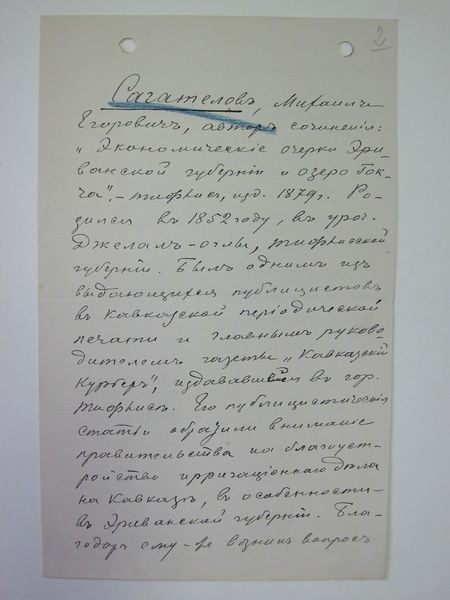 2
Сагателовъ, Михаилъ
Егоровичъ, авторъ сочиненія:
„Экономическіе очерки Эри-
ванской губерніи и озеро Гок-
ча".– Тифлисъ, изд. 1879г. Ро-
дился въ 1852 году, въ уроч.
Джелалъ-оглы, Тифлисской
губерніи. Былъ однимъ изъ
выдающихся публицистовъ
въ Кавказской періодической
печати и главнымъ руково-
дителемъ газеты „Кавказскій
Курьеръ", издававшейся въ гор.
Тифлисѣ. Его публицистическія
статьи обратили вниманіе
правительства на благоуст-
ройство ирригаціоннаго дѣла
на Кавказѣ, въ особенности–
въ Эриванской губерніи. Бла-
годаря ему-же возникъ вопросъ